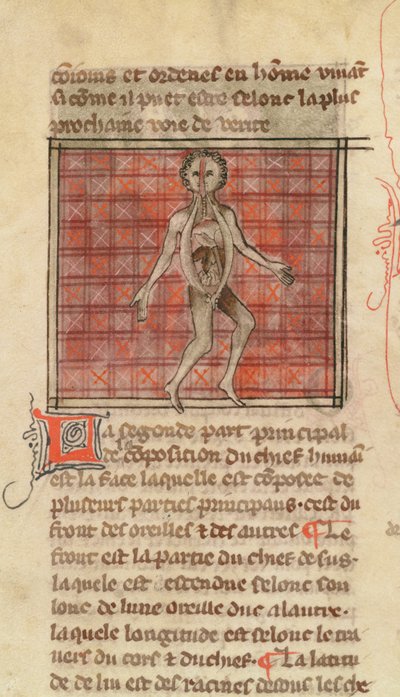 cōioins et ordenes en hōme viuāt
si cōme il puet estre selonc la plus
prochaine voie de verite
La segonde part principal
de la cōposition du chief humaī
est la face laquelle est cōposee de
pluseurs parties principaus · cest du
front des oreilles ⁊ des autres ¶ Le
front est la partie du chief de sus ·
laquele est estendue selonc son
lonc de lune oreille duc a lautre ·
laquele longitude est selonc le tra
uers du cors ⁊ du chief · ¶ La latitu
de de lui est des racines desous les che